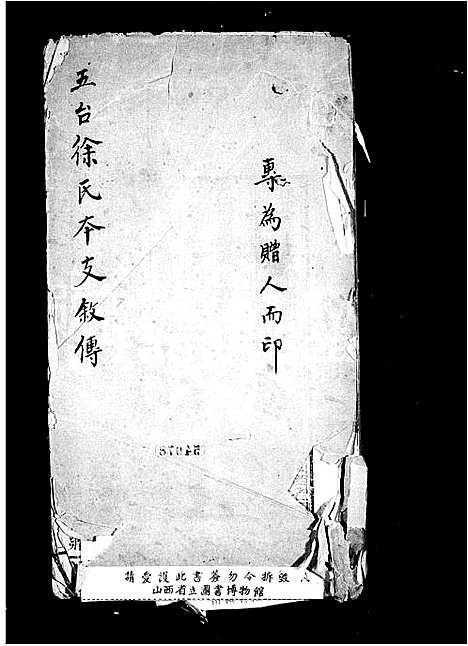 專為贈人而印
五台徐氏本支敘傳
請愛護此書簽勿令拆毀
山西省立圖書博物館